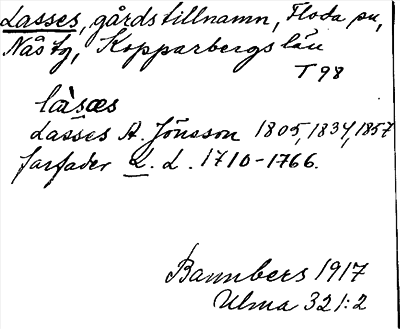 Lasses, gårdstillnamn, Floda sn,
Nås tg, Kopparbergs län
T 98
làsæs
Lasses A. Jönsson 1805, 1834, 1857
farfader L. L. 1710-1766.
Bannbers 1917
Ulma 321:2